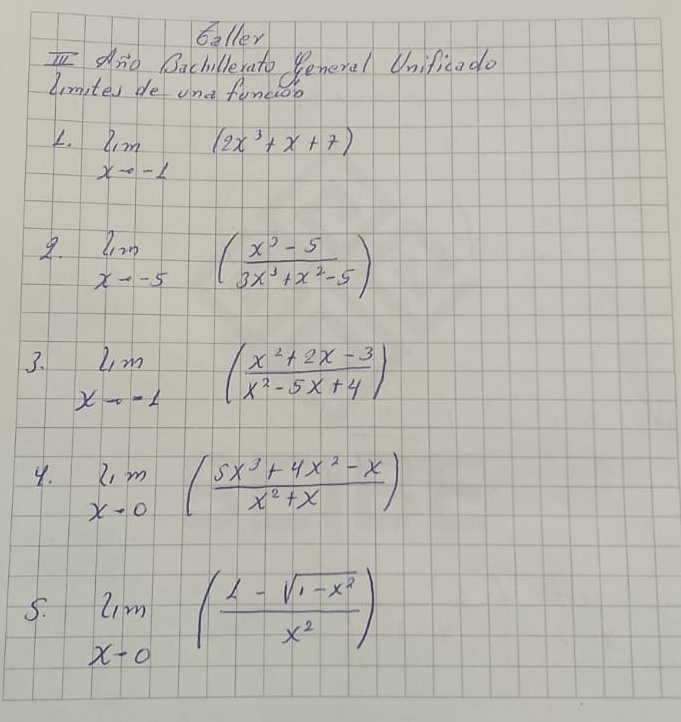 Taller
III Año Bachillerato General Unificado
Limites de una función
1. lim (2x³ + x + 7)
x → -1
2. lim (x³ - 5 / 3x³ + x² - 5)
x → -5
3. lim (x² + 2x - 3 / x² - 5x + 4)
x → -1
4. lim (5x³ + 4x² - x / x² + x)
x → 0
5. lim (1 - √1 - x² / x²)
x → 0